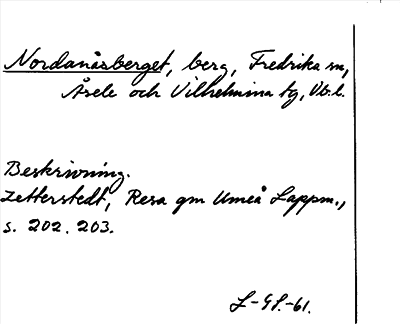 Nordanåsberget, berg, Fredrika sn,
Åsele och Vilhelmina tg, Vb.l.
Beskrivning.
Zetterstedt, Resa gm Umeå Lappm.,
s. 202. 203.